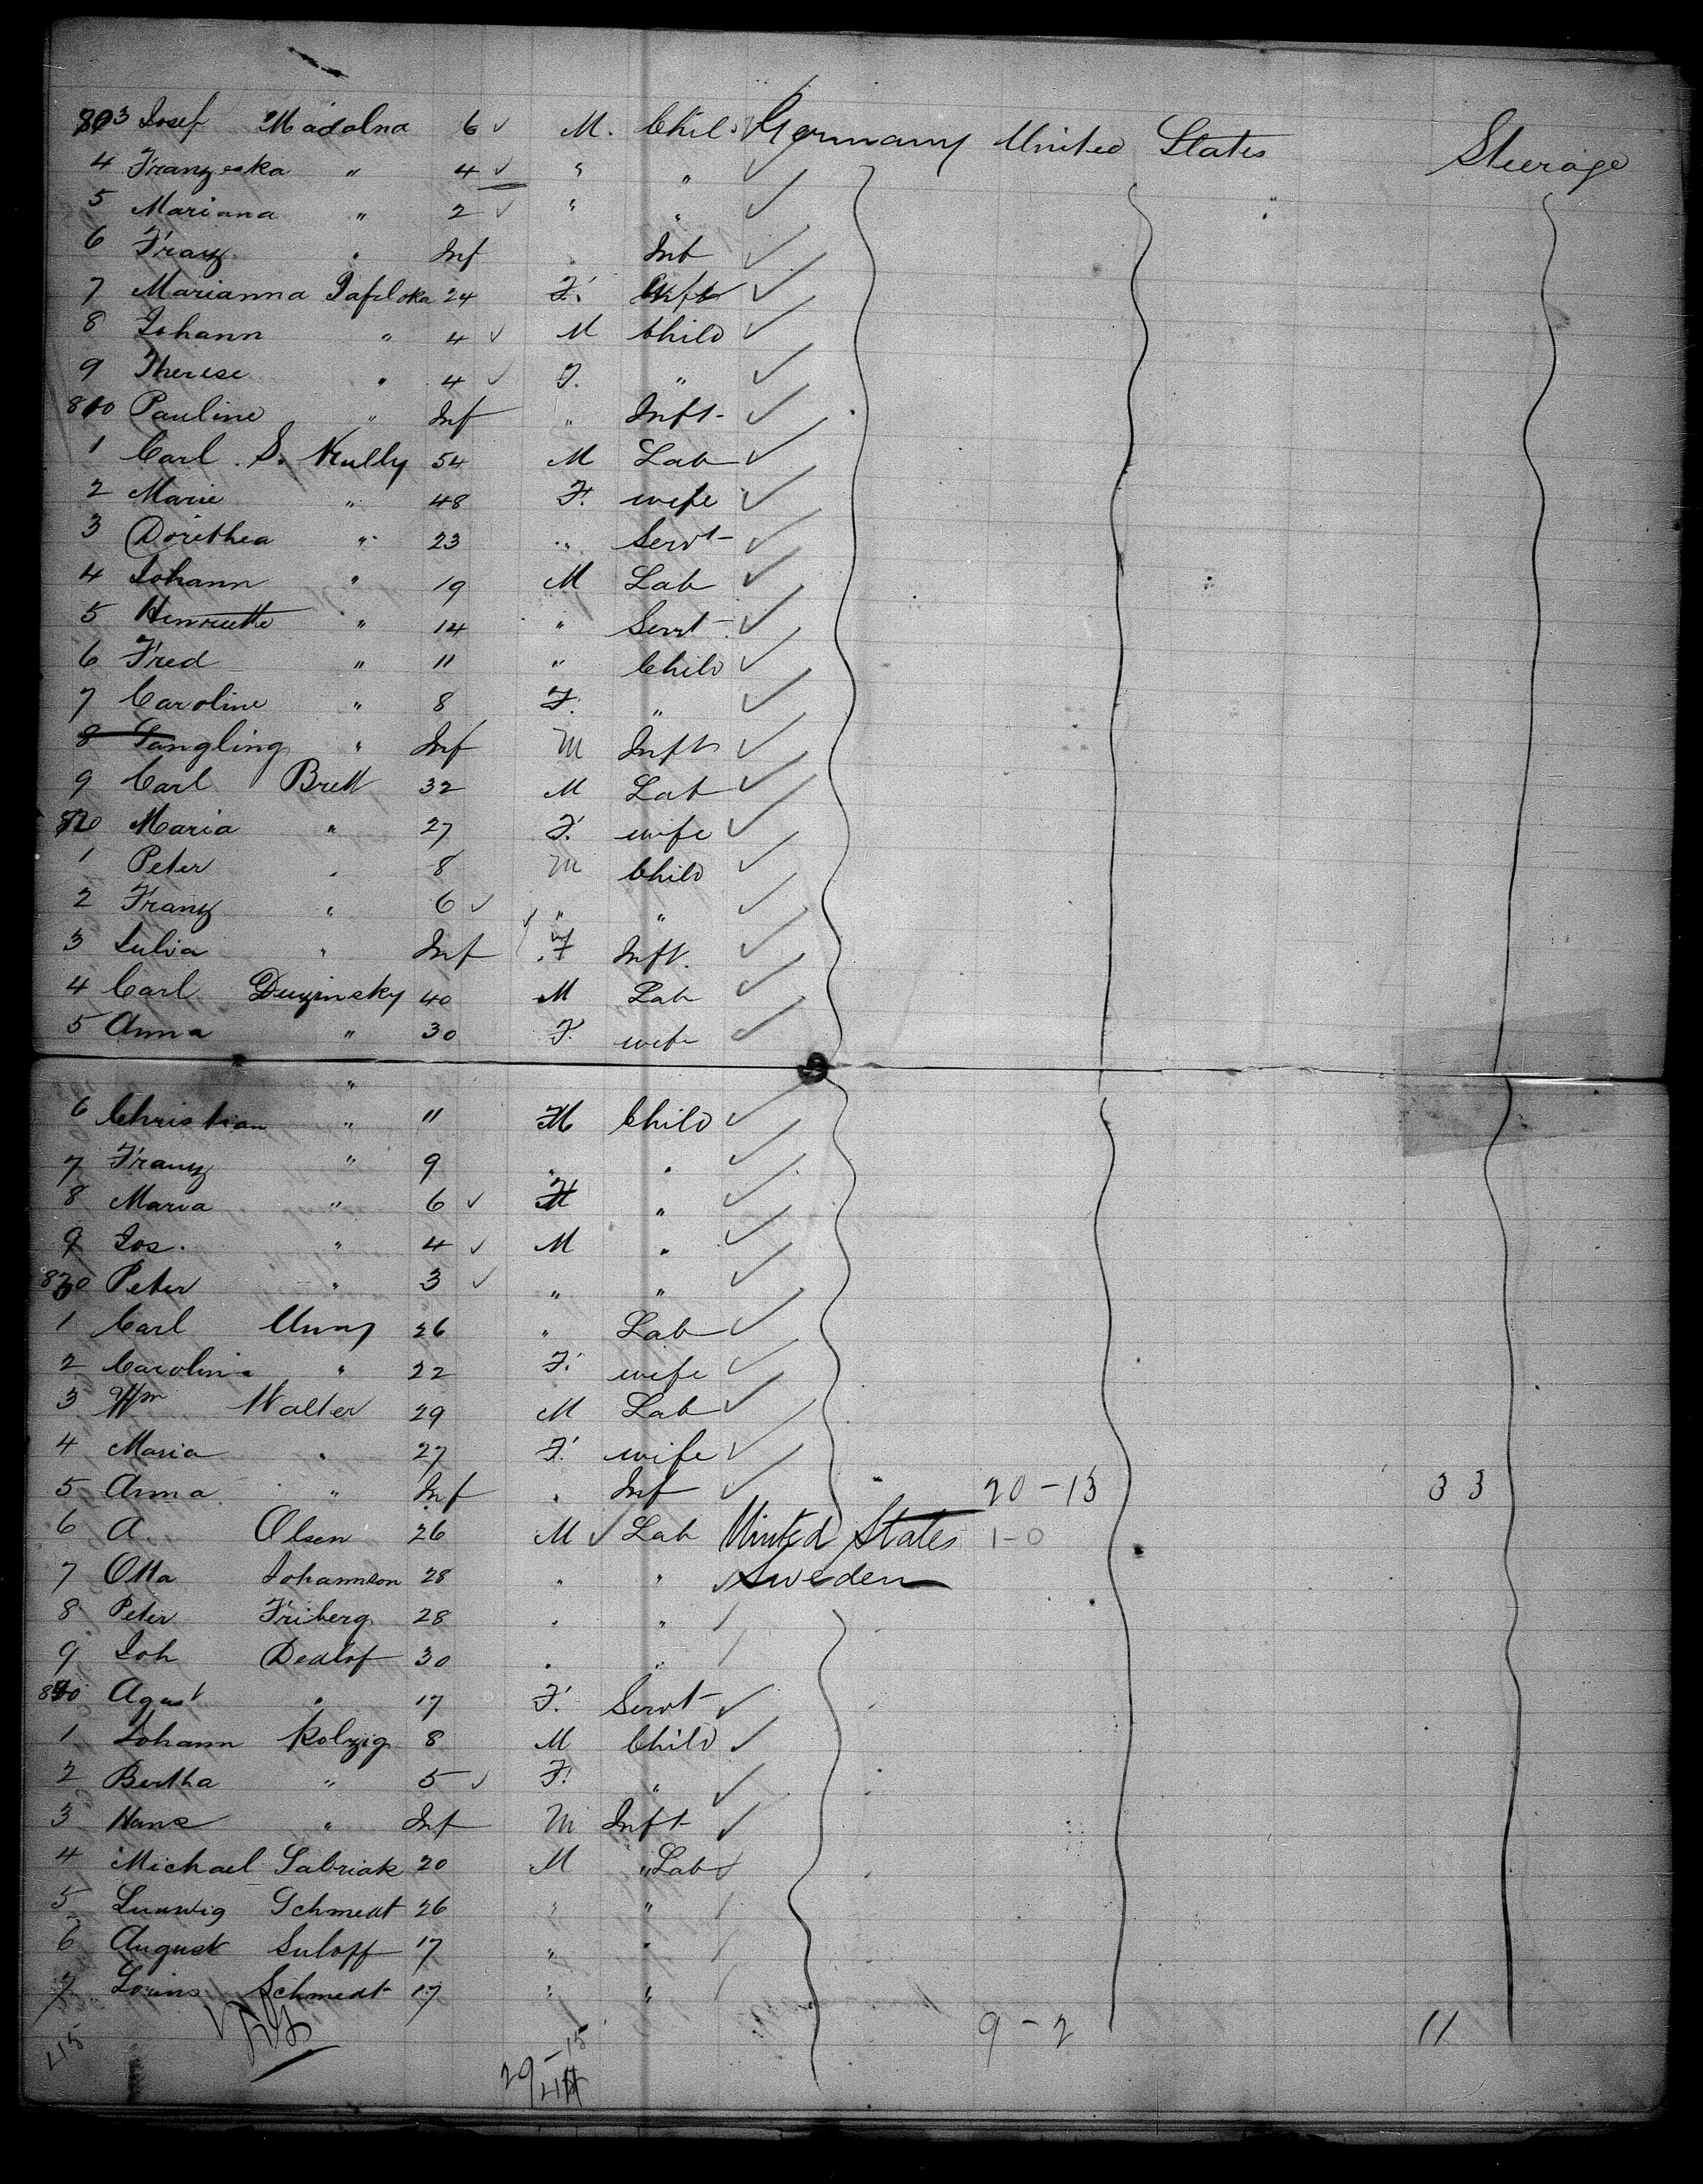 803 Josef Madalna 6 ✓ M. Child Germany United States Steerage
4 Franzeska " 4 ✓ " " ✓
5 Mariana " 2 ✓ " " ✓
6 Franz " Inf " Inf ✓
7 Marianna 24 F. Wife ✓
8 Johann " 4 ✓ M Child ✓
9 Therese " 4 ✓ F. " ✓
810 Pauline " Inf " Inft ✓
1 Carl S. Kully 54 M Lab ✓
2 Marie " 48 F. wife ✓
3 Dorethea " 23 " Servt ✓
4 Johann " 19 M Lab ✓
5 Henriette " 14 " Servt ✓
6 Fred " 11 " Child ✓
7 Caroline " 8 F. " ✓
8 Sangling " Inf M Inft ✓
9 Carl Brett 32 M Lab ✓
820 Maria " 27 F. wife ✓
1 Peter " 8 M Child ✓
2 Franz " 6 ✓ " " ✓
3 Julia " Inf F Inft. ✓
4 Carl Duzinsky 40 M Lab ✓
5 Anna " 30 F. wife ✓
"
6 Christian " 11 M Child ✓
7 Franz " 9 " " ✓
8 Maria " 6 ✓ F " ✓
9 Jos. " 4 ✓ M " ✓
830 Peter " 3 ✓ " " ✓
1 Carl 26 " Lab ✓
2 Carolina " 22 F. wife ✓
3 Wm Walter 29 M Lab ✓
4 Maria " 27 F. wife ✓
5 Anna " Inf " Inf ✓ 20-13 33
6 A Olsen 26 M ✓ Lab United States 1-0
7 Otta Johannson 28 " " ✓ Sweden
8 Peter Friberg 28 " "
9 Joh Dedlof 30 " "
840 Agust " 17 F. Servt ✓
1 Johann Kolzig 8 M Child ✓
2 Bertha " 5 ✓ F. " ✓
3 Hans " Inf M Inft ✓
4 Michael Sabriak 20 M " Lab ✓
5 Ludwig Schmedt 26 " "
6 August Suloff 17 " "
7 Schmedt 17 " "
9-2 11
45
29-15